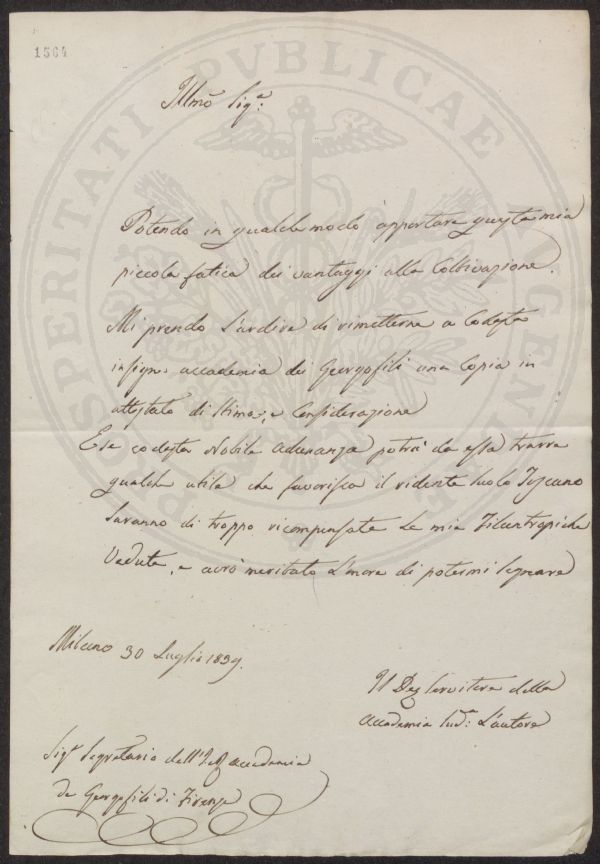 1564
Illmo Sigr:
Potendo in qualche modo apportare questa mia
piccola fatica dei vantaggi alla Coltivazione.
Mi prendo L'ardire di rimetterne a Codesta
insigne accademia dei Georgofili una Copia in
attestato di Stima, e Considerazione
E se codesta Nobile adunanza potrà da essa trarre
qualche utile che favorisca il ridente suolo Toscano
Saranno di troppo ricompensate le mie Filantropiche
Vedute, e avrò meritato L'onore di potermi Segnare
Milano 30 Luglio 1839.
Il Dev Servitore della
accademia Sudа: L'autore
Sigr Segretario dell'I e R accademia
de Georgofili di Firenze
PROSPERITATI PVBLICAE AVGENDAE